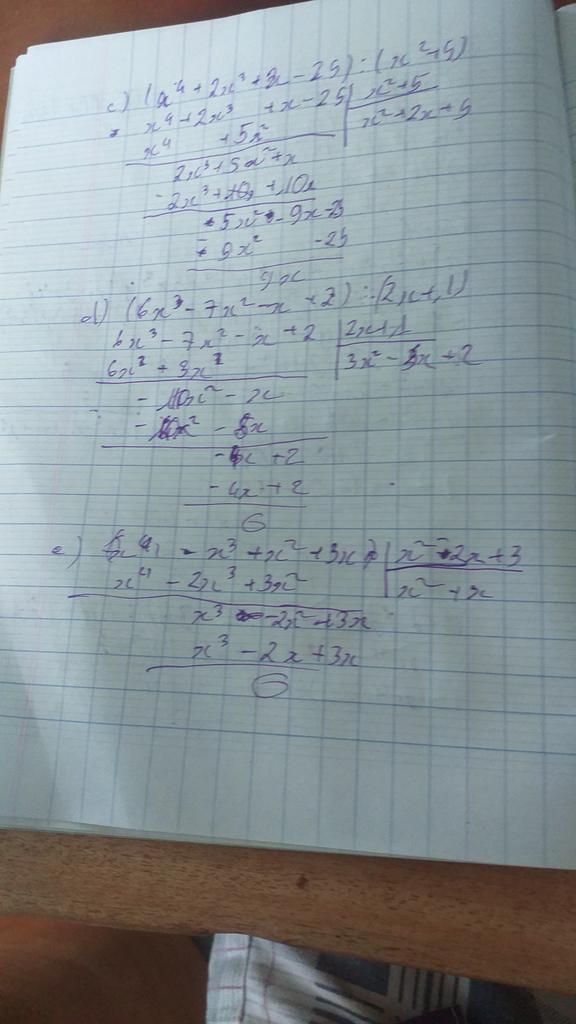 c) (x⁴ + 2x³ + x - 25) : (x² + 5)
- x⁴ + 2x³ + x - 25 | x² + 5
x⁴ + 5x² | x² + 2x + 5
2x³ + 5x² + x
- 2x³ + 10x
5x² - 9x - 25
- 25
9x
d) (6x³ - 7x² - x + 2) : (2x + 1)
6x³ - 7x² - x + 2 | 2x + 1
6x³ + 3x² | 3x² - 5x + 2
- 10x² - x
- 10x² - 5x
4x + 2
- 4x + 2
0
e) x⁴ - x³ + x² + 3x | x² - 2x + 3
x⁴ - 2x³ + 3x² | x² + x
x³ - 2x² + 3x
x³ - 2x + 3x
0